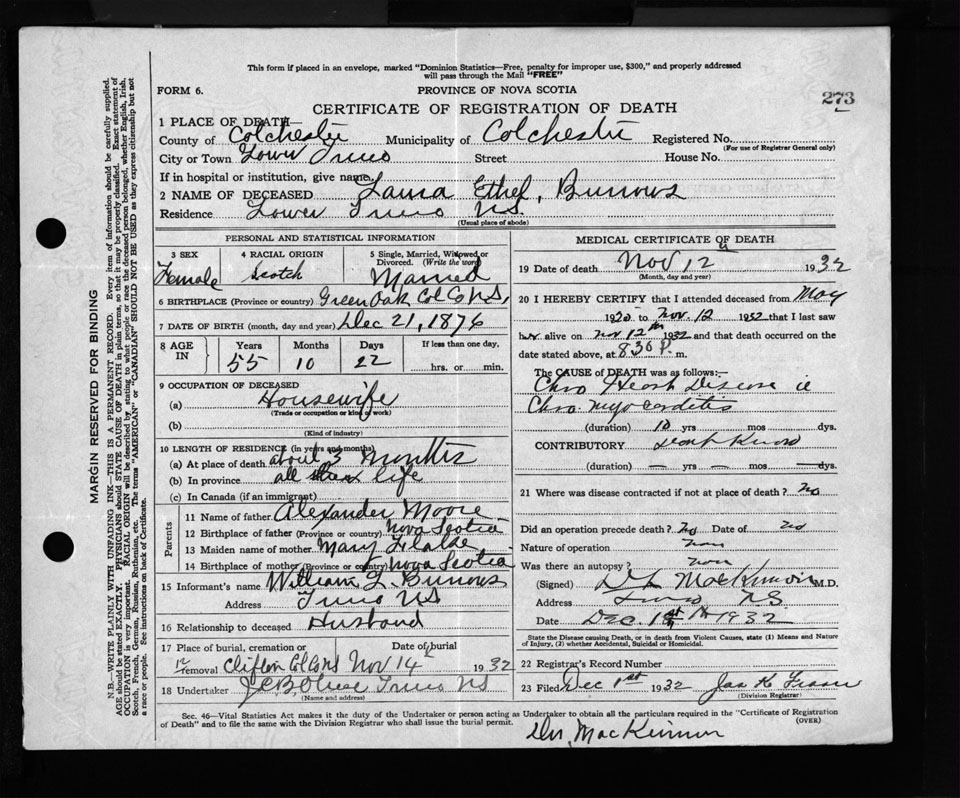 This form if placed in an envelope, marked "Dominion Statistics—Free, penalty for improper use, $300," and properly addressed
will pass through the Mail "FREE"
FORM 6.
PROVINCE OF NOVA SCOTIA
273
CERTIFICATE OF REGISTRATION OF DEATH
1 PLACE OF DEATH—
County of Colchester Municipality of Colchester Registered No.
(For use of Registrar General only)
City or Town Lower Truro Street House No.
If in hospital or institution, give name
2 NAME OF DECEASED Laura Ethel, Burrows
Residence Lower Truro NS.
(Usual place of abode)
MARGIN RESERVED FOR BINDING
N.B.—WRITE PLAINLY WITH UNFADING INK—THIS IS A PERMANENT RECORD. Every item of information should be carefully supplied.
AGE should be stated EXACTLY. PHYSICIANS should STATE CAUSE OF DEATH in plain terms, so that it may be properly classified. Exact statement of
OCCUPATION is very important. RACIAL ORIGIN will be described by stating to what people or race the deceased person belonged, whether English, Irish,
Scotch, French, German, Russian, Ruthenian, etc. The terms "AMERICAN" or "CANADIAN" SHOULD NOT BE USED as they express citizenship but not
a race or people. See instructions on back of Certificate.
PERSONAL AND STATISTICAL INFORMATION
3 SEX
Female
4 RACIAL ORIGIN
Scotch
5 Single, Married, Widowed or
Divorced. (Write the word)
Married
6 BIRTHPLACE (Province or country) Green Oak Col Co N.S.
7 DATE OF BIRTH (month, day and year) Dec 21, 1876
8 AGE
IN
Years
55
Months
10
Days
22
If less than one day,
hrs. or min.
9 OCCUPATION OF DECEASED
(a) Housewife
(Trade or occupation or kind of work)
(b)
(Kind of industry)
10 LENGTH OF RESIDENCE (in years and months)
(a) At place of death about 3 Months
(b) In province all life
(c) In Canada (if an immigrant)
Parents
11 Name of father Alexander Moore
12 Birthplace of father (Province or country) Nova Scotia
13 Maiden name of mother Mary
14 Birthplace of mother (Province or country) Nova Scotia
15 Informant's name William L. Burrows
Address Truro NS
16 Relationship to deceased Husband
17 Place of burial, cremation or Date of burial
removal Clifton Col Co NS Nov 14 1932
18 Undertaker Truro NS
(Name and address)
MEDICAL CERTIFICATE OF DEATH
19 Date of death Nov 12 1932
(Month, day and year)
20 I HEREBY CERTIFY that I attended deceased from May
to Nov. 12 1932 that I last saw
her alive on Nov 12th 1932 and that death occurred on the
date stated above, at 8.30 P. m.
The CAUSE of DEATH was as follows:—
Chro Heart Disease ie
Chro. myocarditis
(duration) 10 yrs mos. dys.
CONTRIBUTORY don't know
(duration) — yrs — mos — dys.
21 Where was disease contracted if not at place of death? no
Did an operation precede death? No Date of no
Nature of operation non
Was there an autopsy? non
(Signed) MacKinnon M.D.
Address Truro N.S.
Date Dec. 1st 1932
State the Disease causing Death, or in death from Violent Causes, state (1) Means and Nature
of Injury, (2) whether Accidental, Suicidal or Homicidal.
22 Registrar's Record Number
23 Filed Dec 1st 1932 Jas K Fraser
(Division Registrar)
Sec. 46—Vital Statistics Act makes it the duty of the Undertaker or person acting as Undertaker to obtain all the particulars required in the "Certificate of Registration
of Death" and to file the same with the Division Registrar who shall issue the burial permit.
(OVER)
MacKinnon